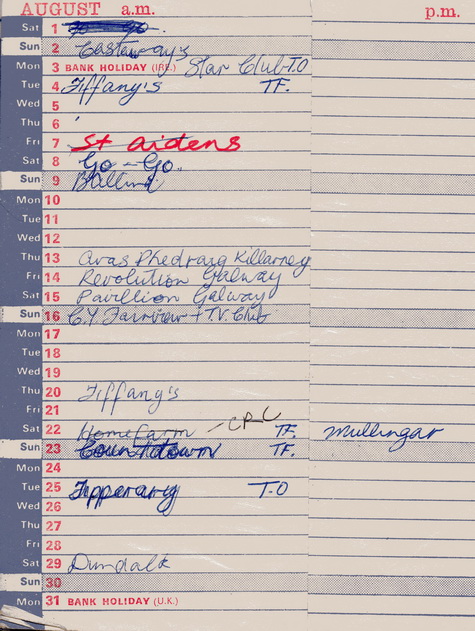 AUGUST a.m. p.m.
Sat 1 Go Go
Sun 2 Casteway's
Mon 3 BANK HOLIDAY (IRE.) Star Club T.O
Tue 4 Tiffany's TF.
Wed 5
Thu 6
Fri 7 St Aidens
Sat 8 Go - Go.
Sun 9
Mon 10
Tue 11
Wed 12
Thu 13 Aras Phedraig Killarney
Fri 14 Revolution Galway
Sat 15 Pavillion Galway
Sun 16 C.Y. Fairview + T.V. Club
Mon 17
Tue 18
Wed 19
Thu 20 Tiffany's
Fri 21
Sat 22 Home Farm - CRC TF. Mullingar
Sun 23 Countdown TF.
Mon 24
Tue 25 Tipperary T.O
Wed 26
Thu 27
Fri 28
Sat 29 Dundalk
Sun 30
Mon 31 BANK HOLIDAY (U.K.)